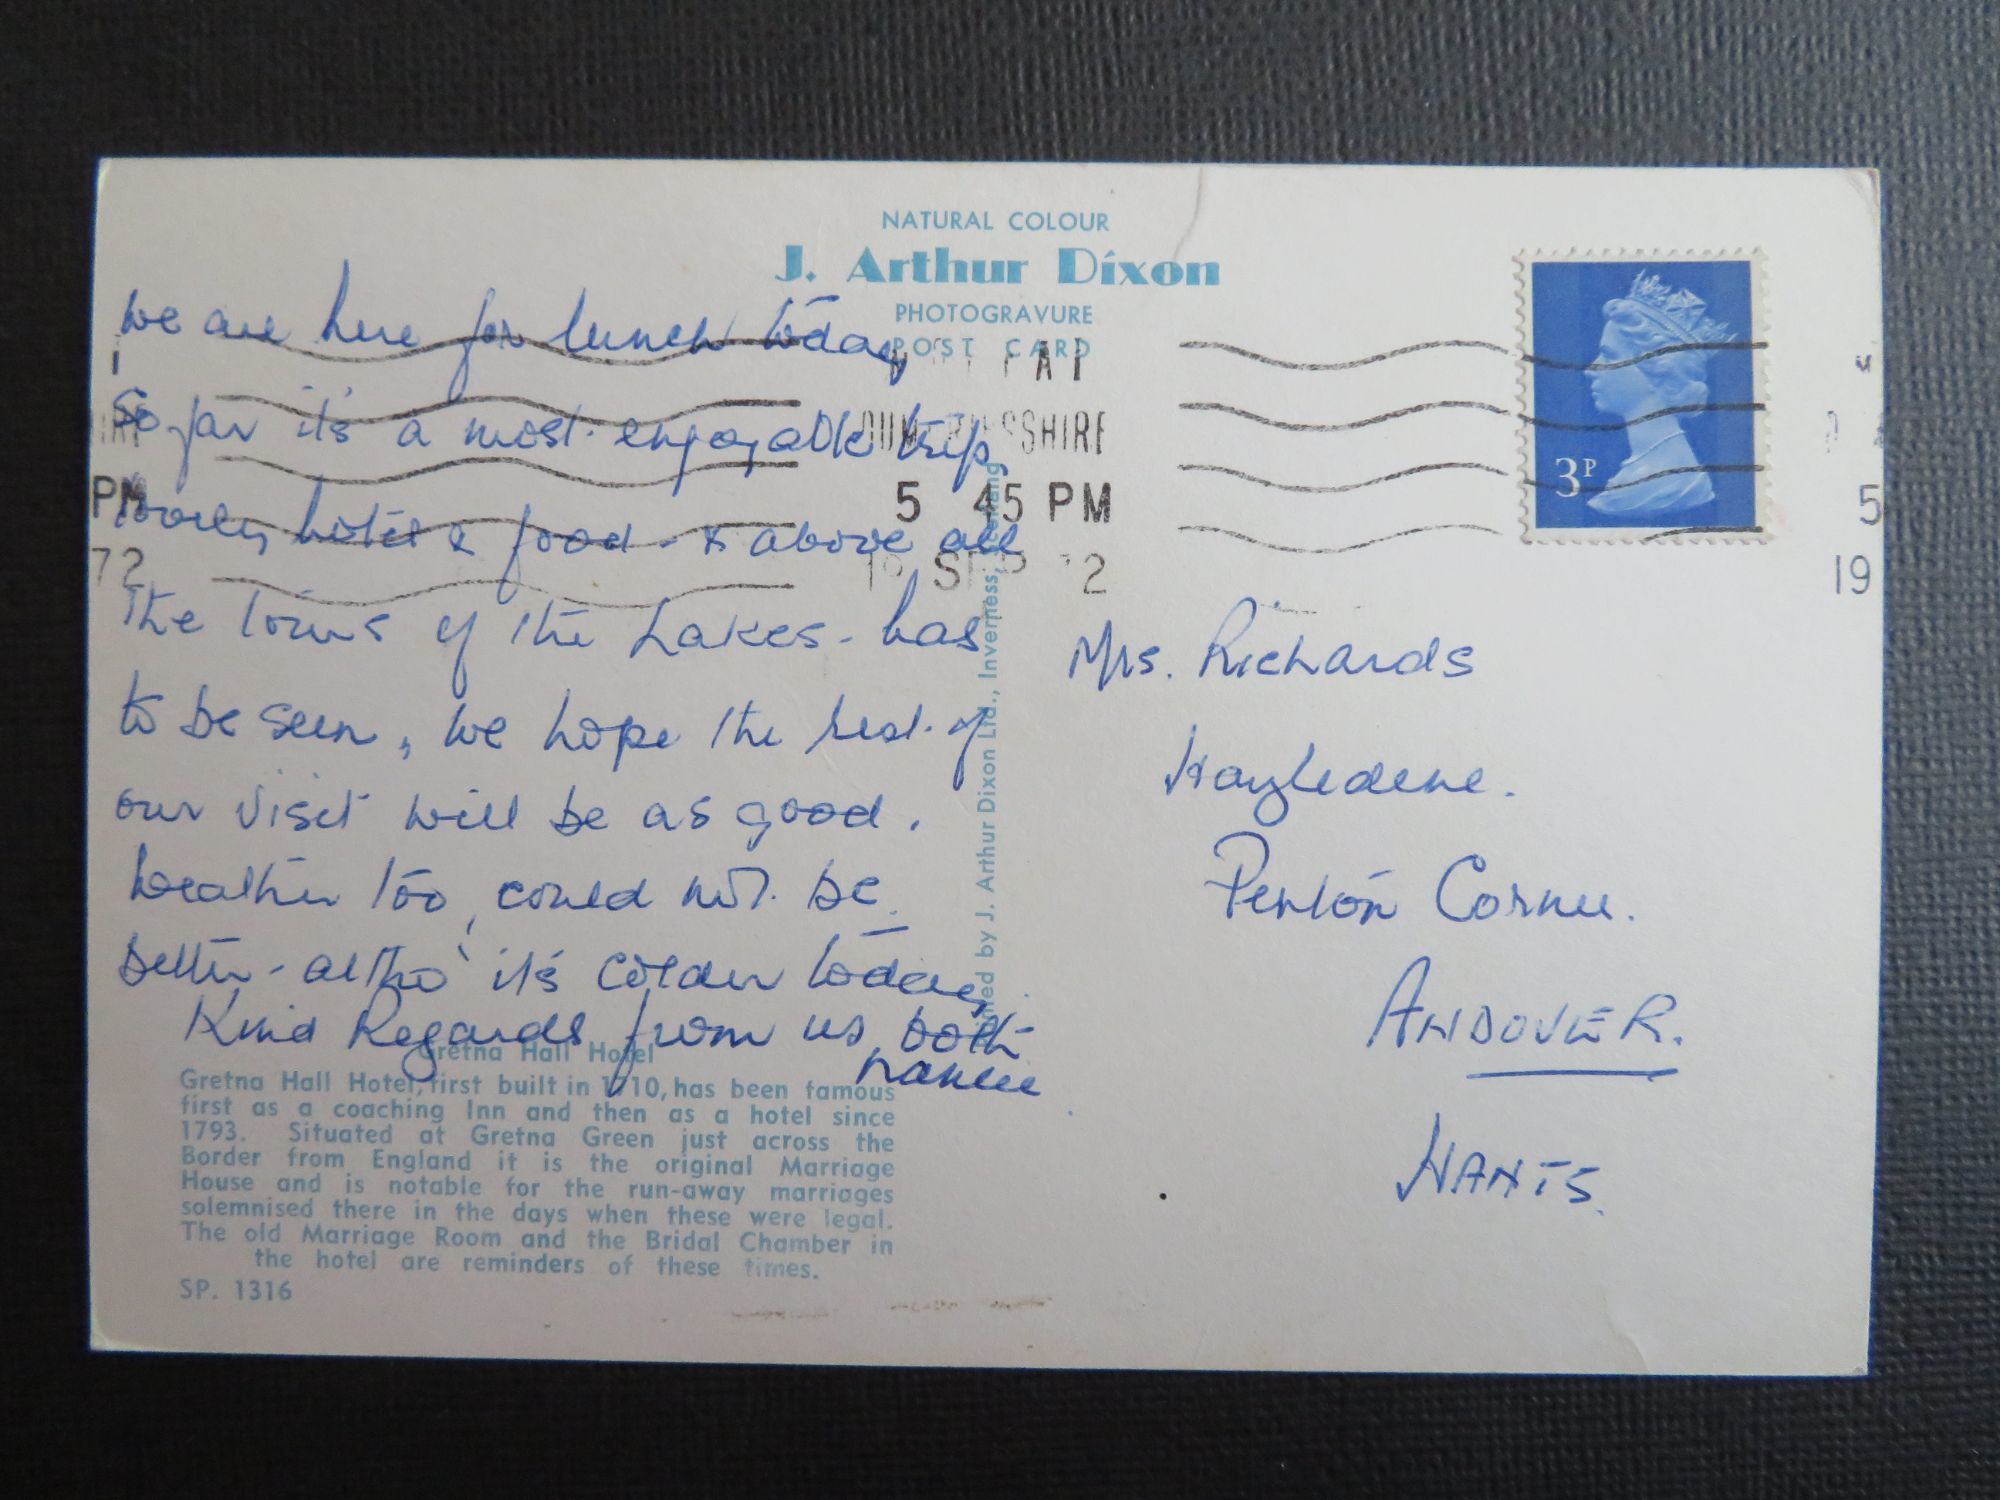 NATURAL COLOUR
J. Arthur Dixon
PHOTOGRAVURE
POST CARD
we are here for lunch today
So far it's a most enjoyable trip
Lovely hotels & food - & above all
the
of the Lakes - has
to be seen, we hope the rest of
our visit will be as good.
Weather too, could not be
better - altho' it's colder today
Kind Regards from us both
Gretna Hall Hotel
Gretna Hall Hotel, first built in 1710, has been famous
first as a coaching Inn and then as a hotel since
1793. Situated at Gretna Green just across the
Border from England it is the original Marriage
House and is notable for the run-away marriages
solemnised there in the days when these were legal.
The old Marriage Room and the Bridal Chamber in
the hotel are reminders of these times.
SP. 1316
by J. Arthur Dixon Ltd., Inverness,
PM
72
5 45 PM
SEP 72
3P
5
19
Mrs. Richards
Penton Corner.
ANDOVER.
HANTS.